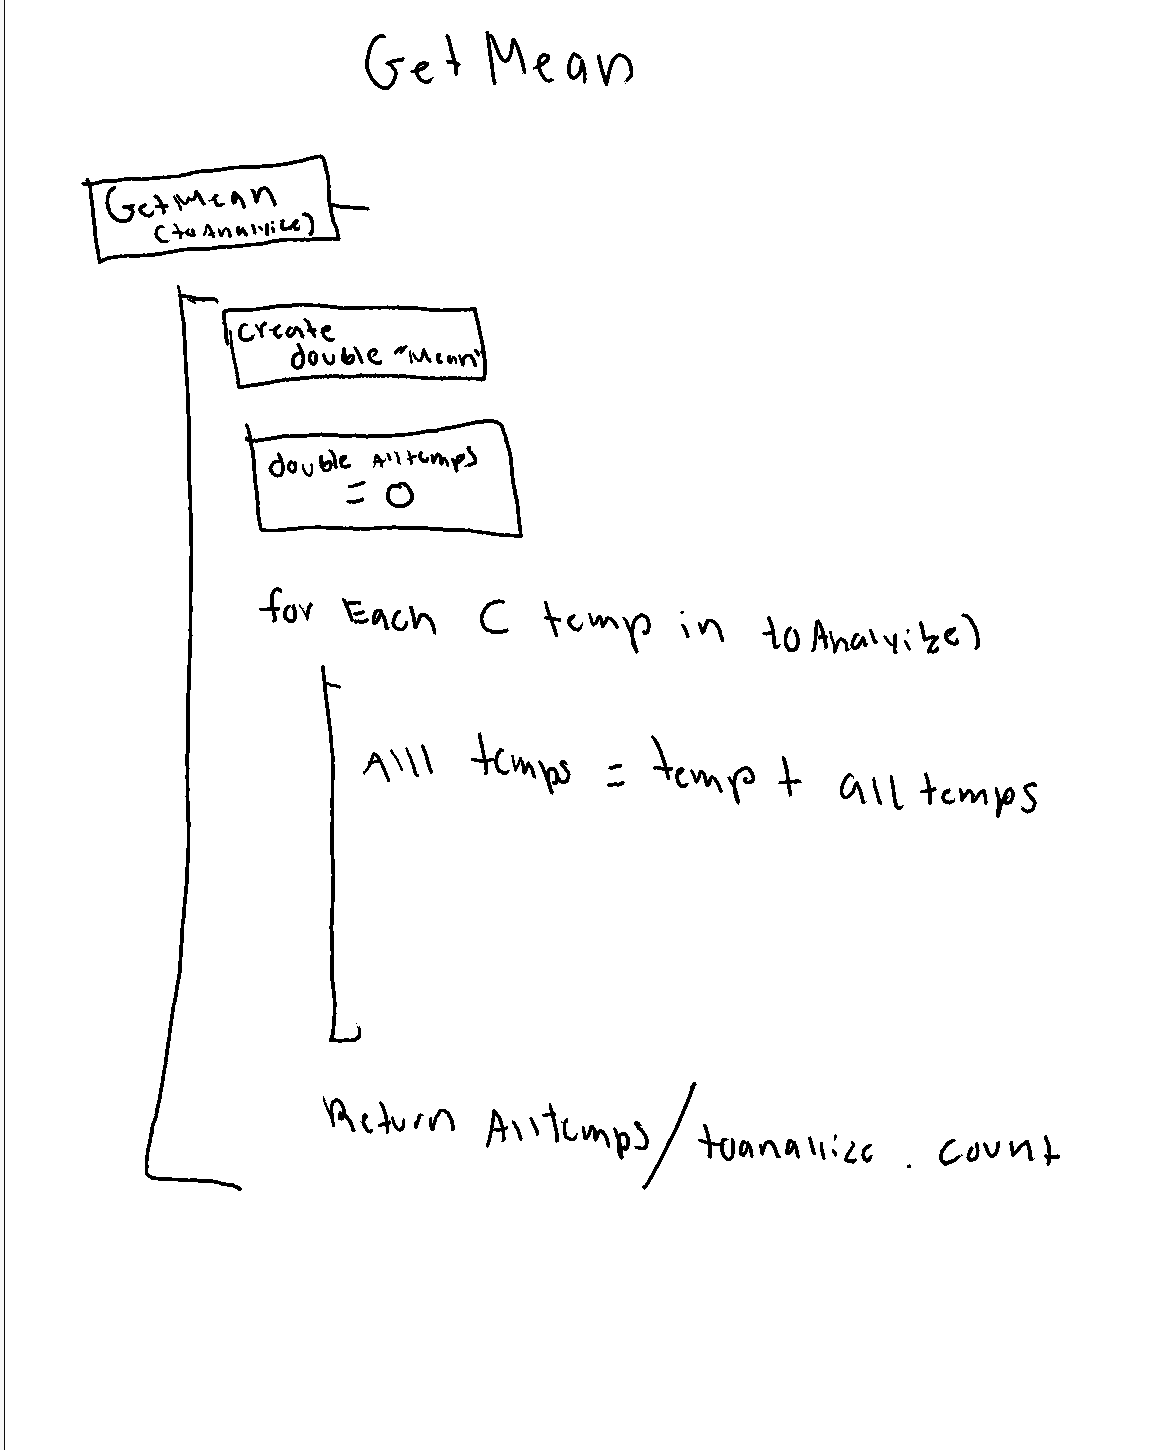 Get Mean
GetMean
(toAnalyize)
create
double "Mean"
double Alltemps
= 0
for Each ( temp in toAnalyize)
Alll temps = temp + all temps
Return Alltemps / toanallize . count